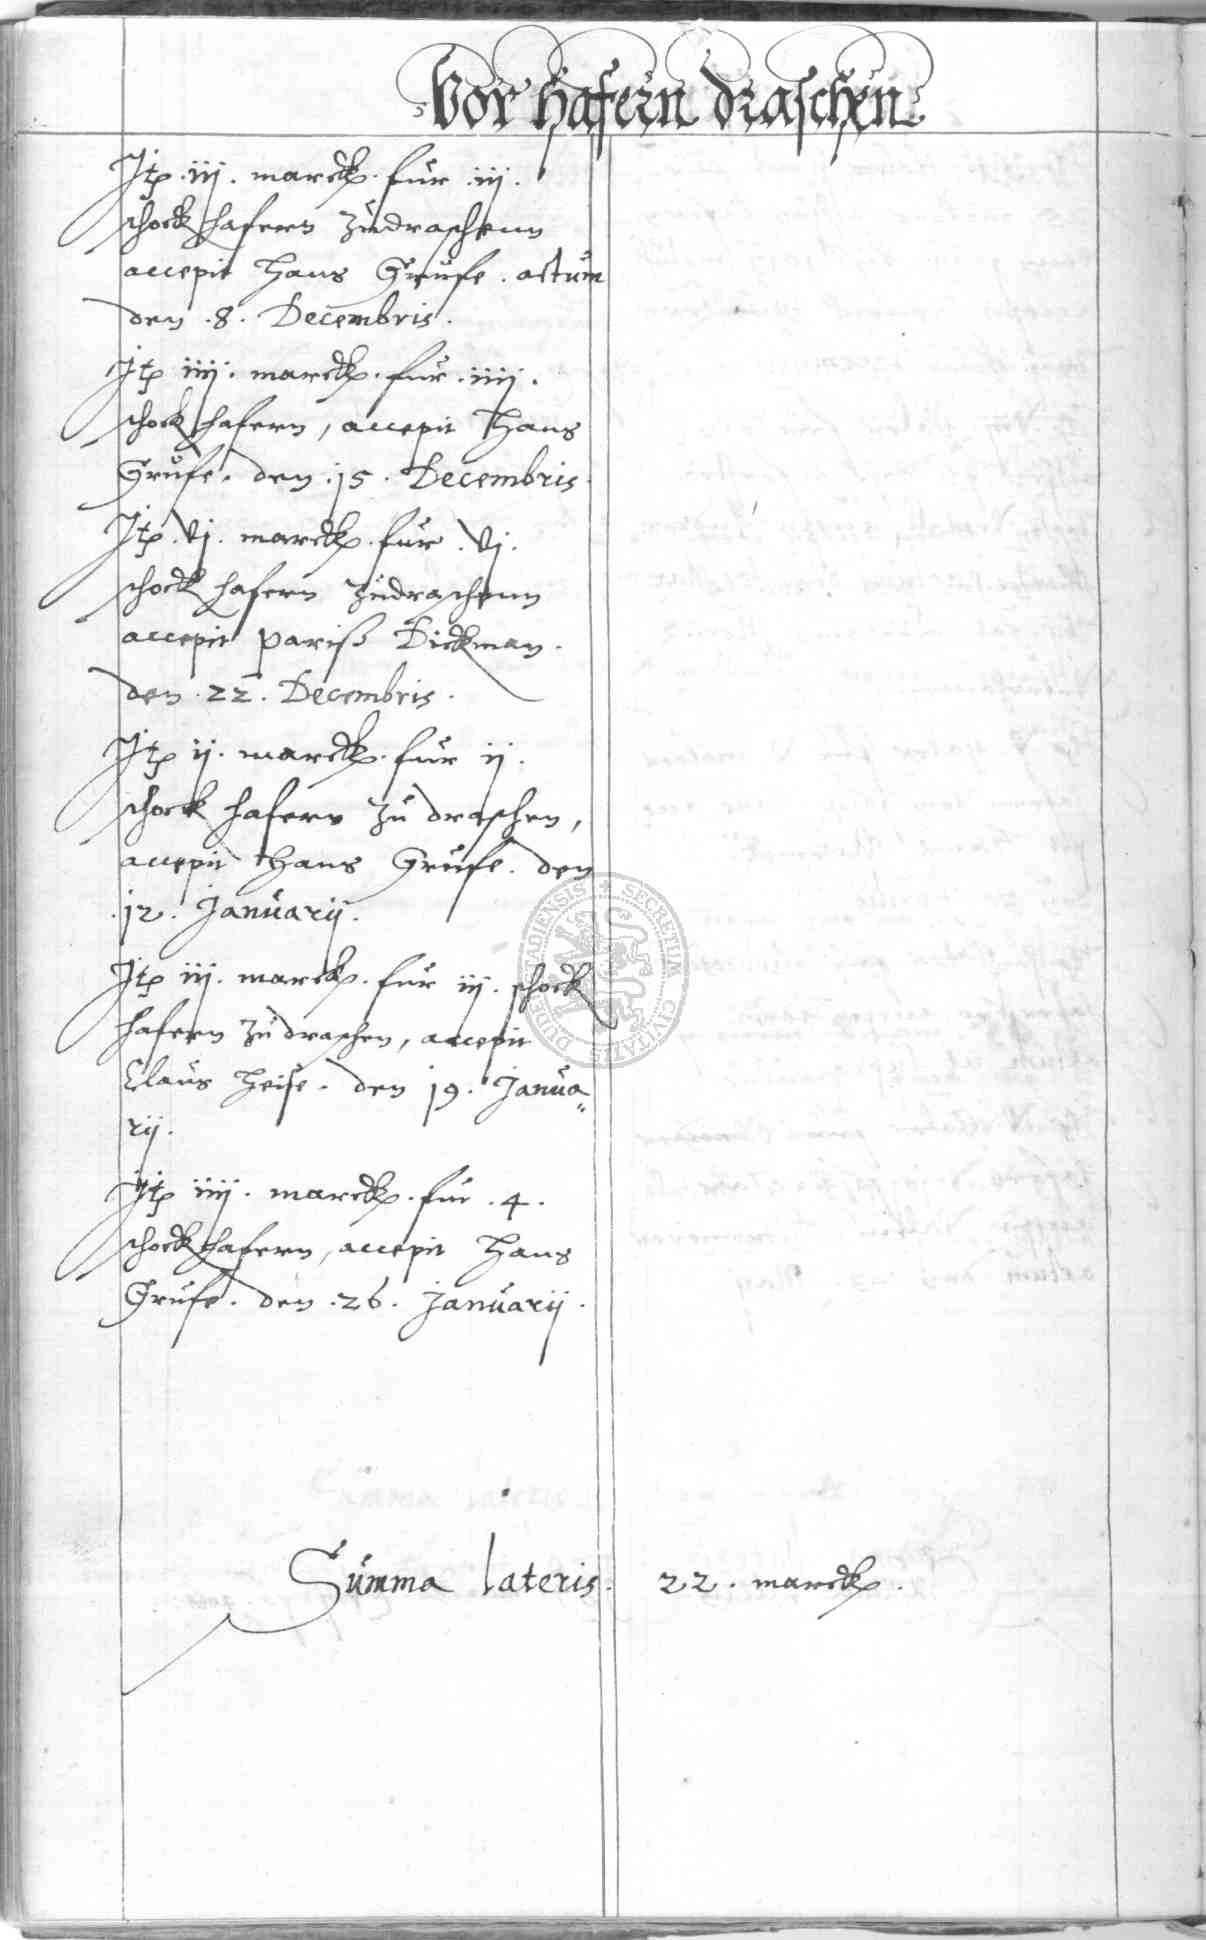 Vor hafern draschen
Jtp .iij. marck. fur .iij.
schock hafern zudraschenn
accepit Hans Grufe. actum
den .8. Decembris.
Jtp iiij. marck. fur .iiij.
schock hafern, accepit Hans
Grufe. den .15. Decembris.
Jtp .vj. marck. fur .vj.
schock hafern zudraschenn
accepit pariß Dickman.
den .22. Decembris.
Jtp ij. marck. fur ij.
schock hafern zu draschen,
accepit Hans Grufe. den
.12. Januarij.
Jtp iij. marck. fur iij. schock
hafern zu draschen, accepit
Claus Heise. den 19. Janua„
rij.
Jtp iiij. marck. fur .4.
schock hafern, accepit Hans
Grufe. den .26. Januarij.
Summa lateris. 22. marck.
SECRETUM CIVITATIS DUDERSTADIENSIS